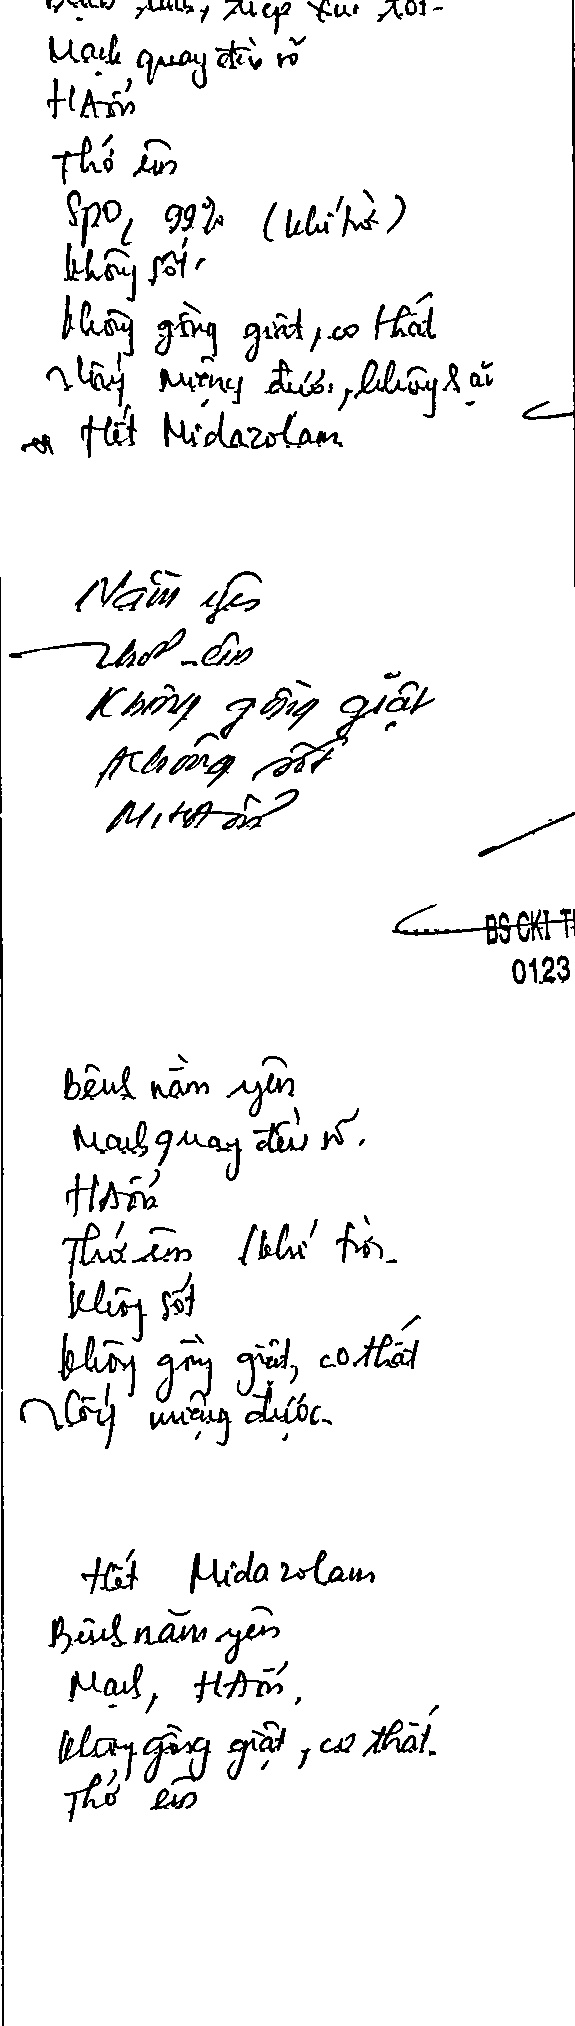 Bệnh tỉnh, tiếp xúc tốt.
Mạch quay đều rõ
HA ổn
Thở êm
SpO2 99% (khí trời)
Không sốt.
Không gồng giật, co thắt
Uống được, không sặc
Hết Midazolam
Nằm yên
Thở êm
Không gồng giật
Không sốt
M, HA ổn
BS CKI T
0123
Bệnh nằm yên
Mạch quay đều rõ.
HA ổn
Thở êm (khí trời.
Không sốt
Không gồng giật, co thắt
được.
Hết Midazolam
Bệnh nằm yên
Mạch, HA ổn.
Không gồng giật, co thắt.
Thở êm